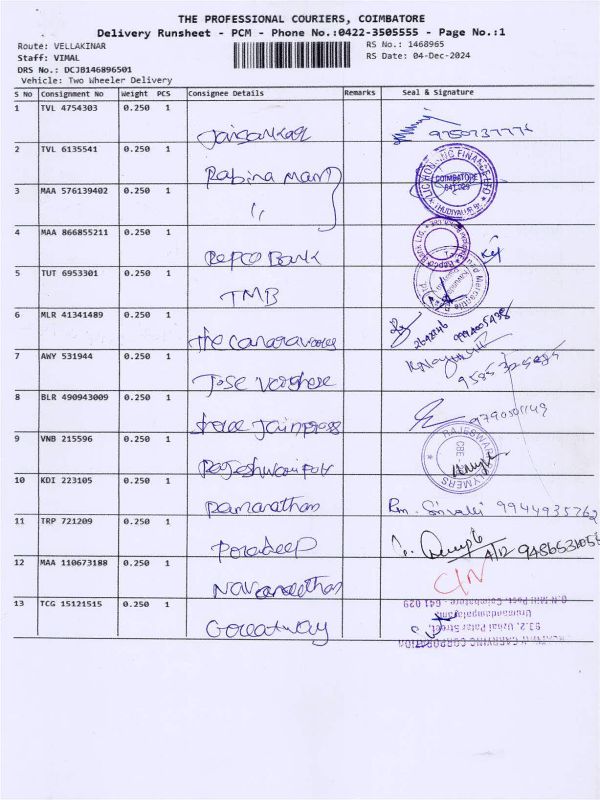 THE PROFESSIONAL COURIERS, COIMBATORE
Delivery Runsheet - PCM - Phone No.:0422-3505555 - Page No.:1
Route: VELLAKINAR
RS No.: 1468965
Staff: VIMAL
RS Date: 04-Dec-2024
DRS No.: DCJB146896501
Vehicle: Two Wheeler Delivery
S No Consignment No Weight PCS Consignee Details Remarks Seal & Signature
1 TVL 4754303 0.250 1
Jaisankar
2 TVL 6135541 0.250 1
Rabina Mary
COIMBATORE
641 029
3 MAA 576139402 0.250 1
"
4 MAA 866855211 0.250 1
Repco Bank
5 TUT 6953301 0.250 1
TMB
6 MLR 41341489 0.250 1
The Canara
7 AWY 531944 0.250 1
Jose Verghese
8 BLR 490943009 0.250 1
Shree Jain press
9 VNB 215596 0.250 1
RAJESWARI POLYMERS
CBE
Rajeshwari Poly
10 KDI 223105 0.250 1
Ramanathan
9944935762
11 TRP 721209 0.250 1
Poradeep
4/12
12 MAA 110673188 0.250 1
Navaneethan
13 TCG 15121515 0.250 1
Greatway
CARRYING CORPORATION